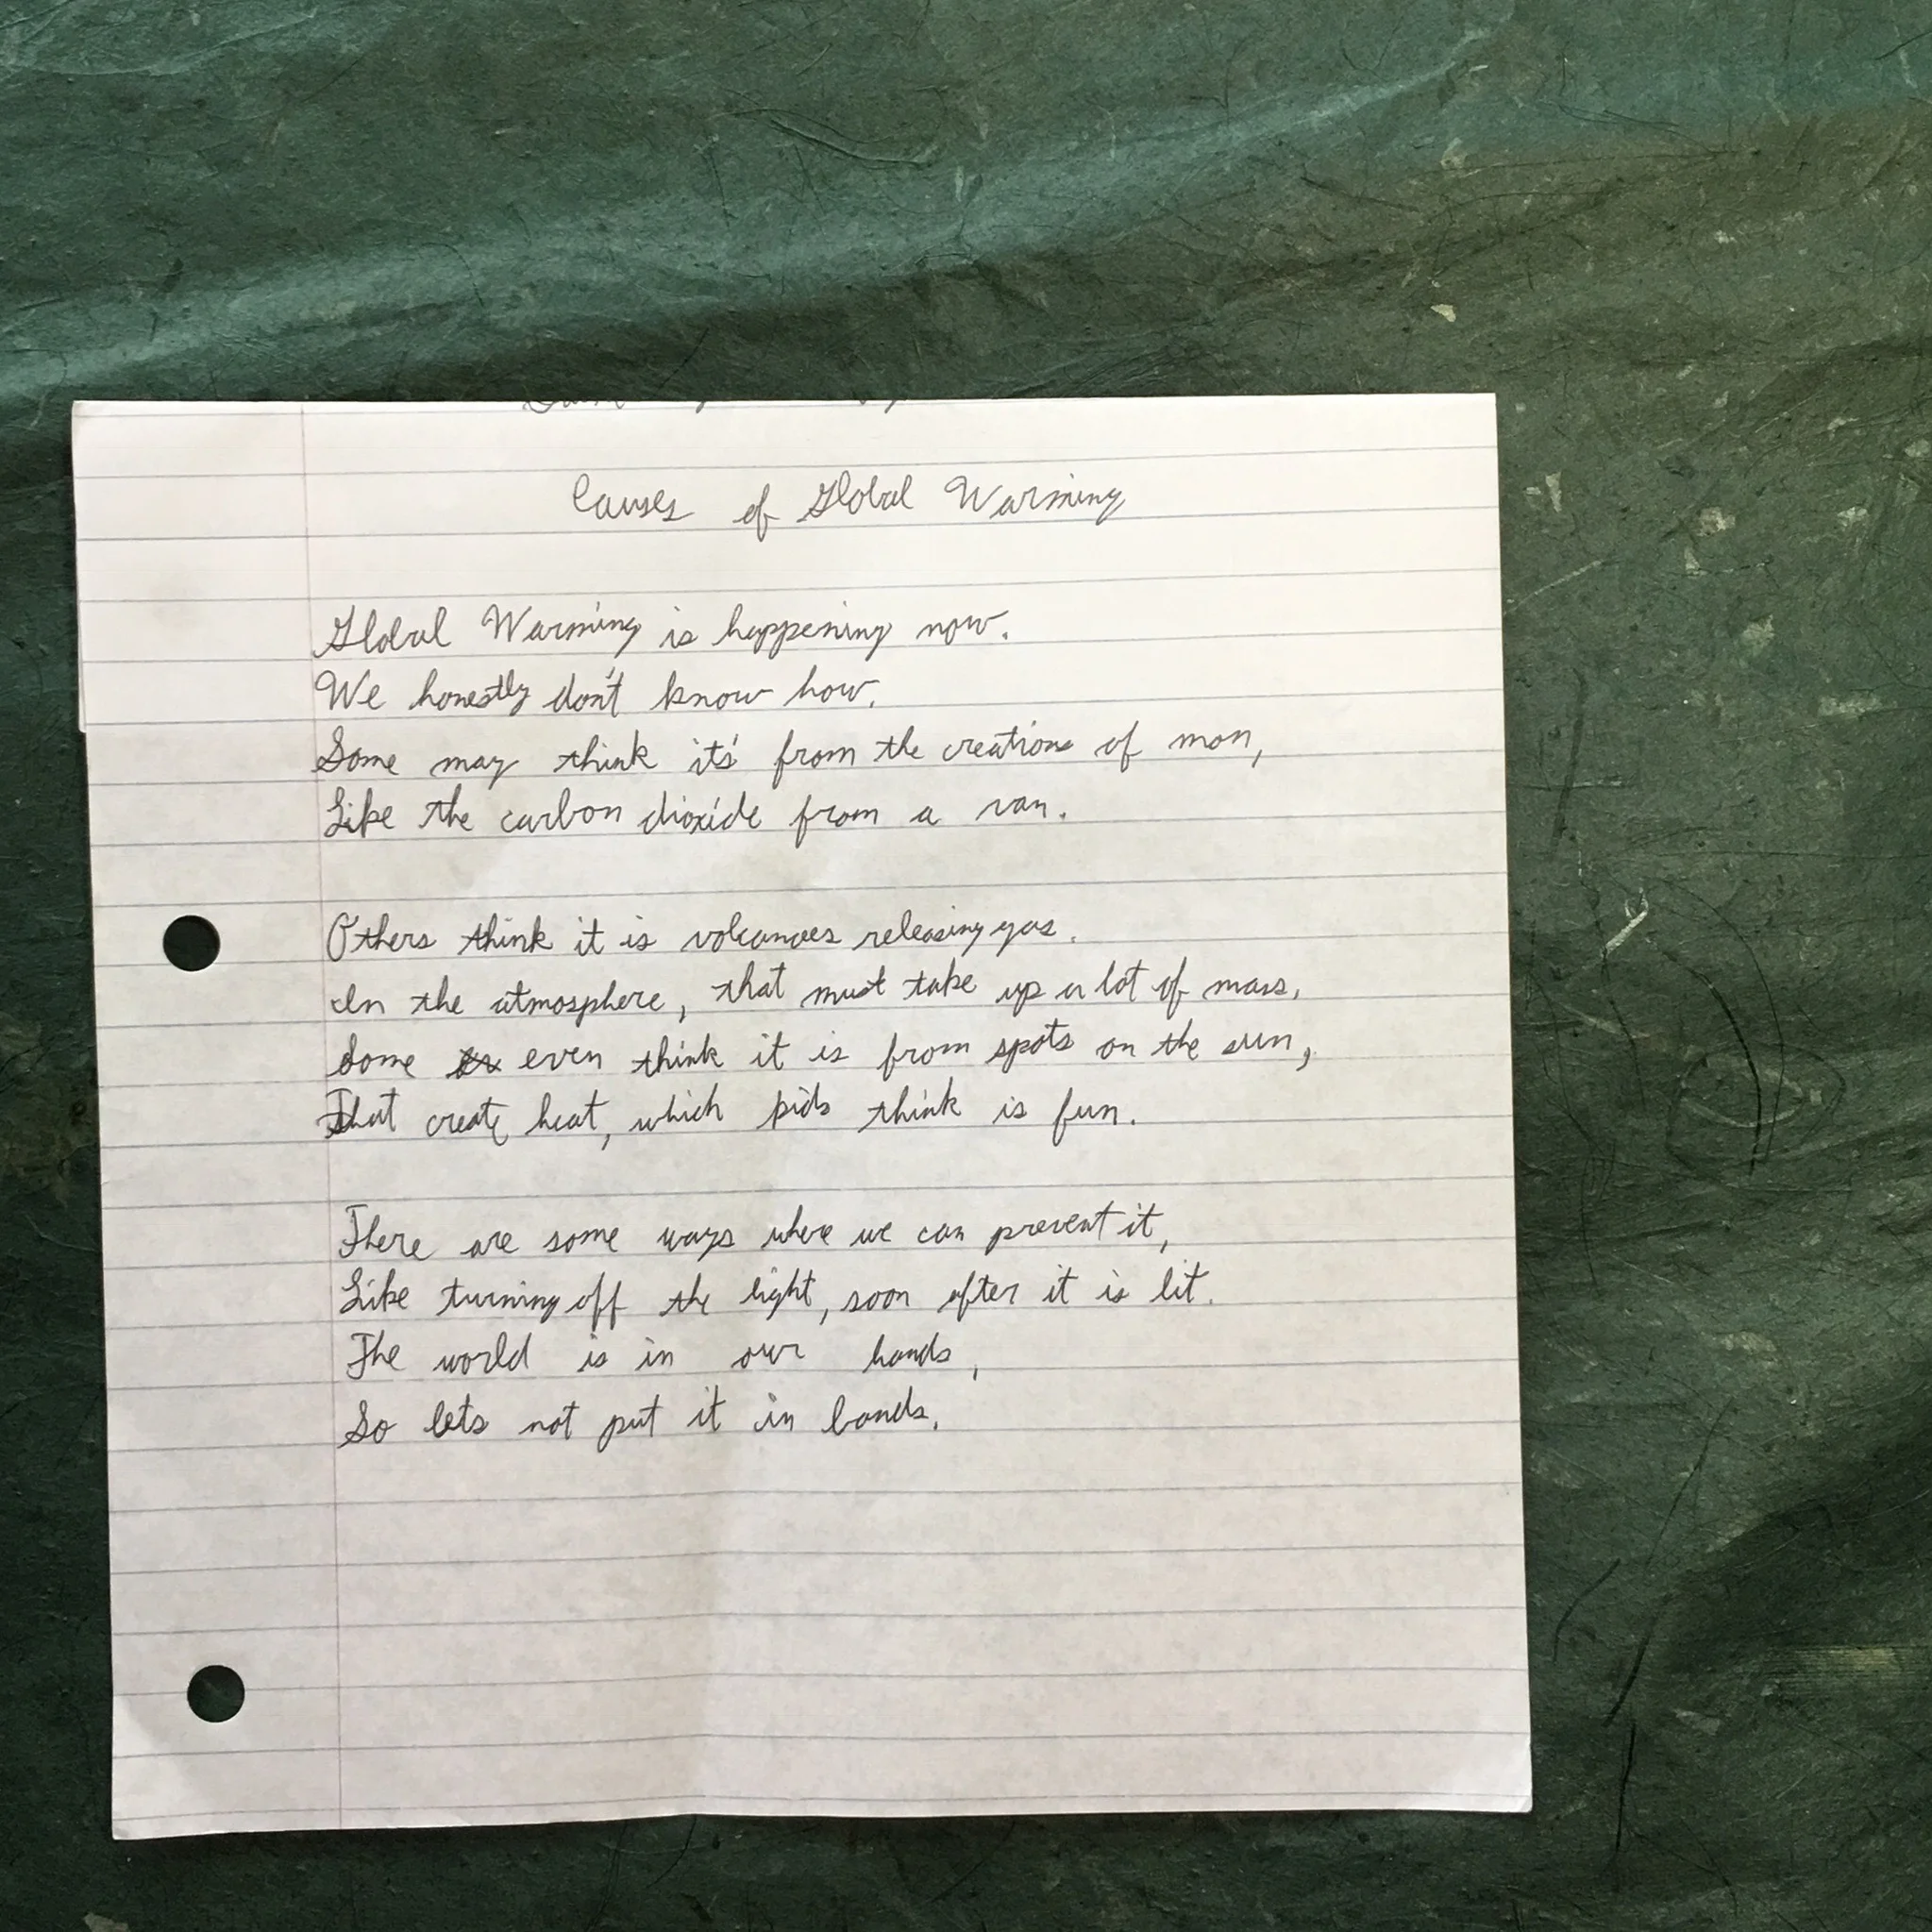 Causes of Global Warming
Global Warming is happening now.
We honestly don't know how.
Some may think it's from the creations of man,
Like the carbon dioxide from a van.
Others think it is volcanoes releasing gas.
In the atmosphere, that must take up a lot of mass.
Some even think it is from spots on the sun,
That create heat, which kids think is fun.
There are some ways where we can prevent it,
Like turning off the light, soon after it is lit.
The world is in our hands,
So lets not put it in bands.